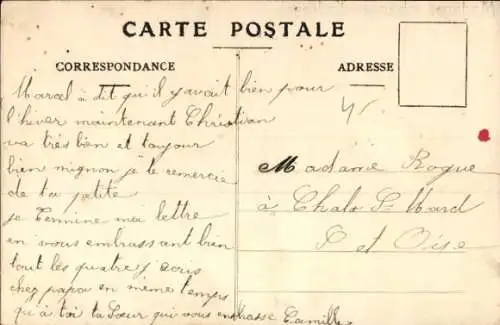 CARTE POSTALE
CORRESPONDANCE
ADRESSE
Marcel à dit qu'il y avait bien pour
l'hiver maintenant Christian
va très bien et toujour
bien mignon je le remercie
de ta petite
je termine ma lettre
en vous embrassant bien
tout les quatre j'écris
chez papa en même temps
qu'à toi ta Sœur qui vous embrasse Camille
Madame Rogue
à Chalo St Mard
S et Oise